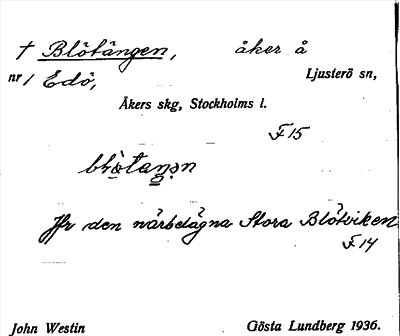 † Blötängen, åker å
nr 1 Edö, Ljusterö sn,
Åkers skg, Stockholms l.
F 15
Jfr den närbelägna Stora Blötviken
F 14
John Westin Gösta Lundberg 1936.